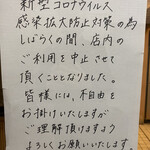 新型コロナウイルス
感染拡大防止対策の為
しばらくの間、店内の
ご利用を中止させて
頂くことなりました。
皆様には、不自由を
お掛けいたしますが
ご理解頂けますよう
よろしくお願いいたします。